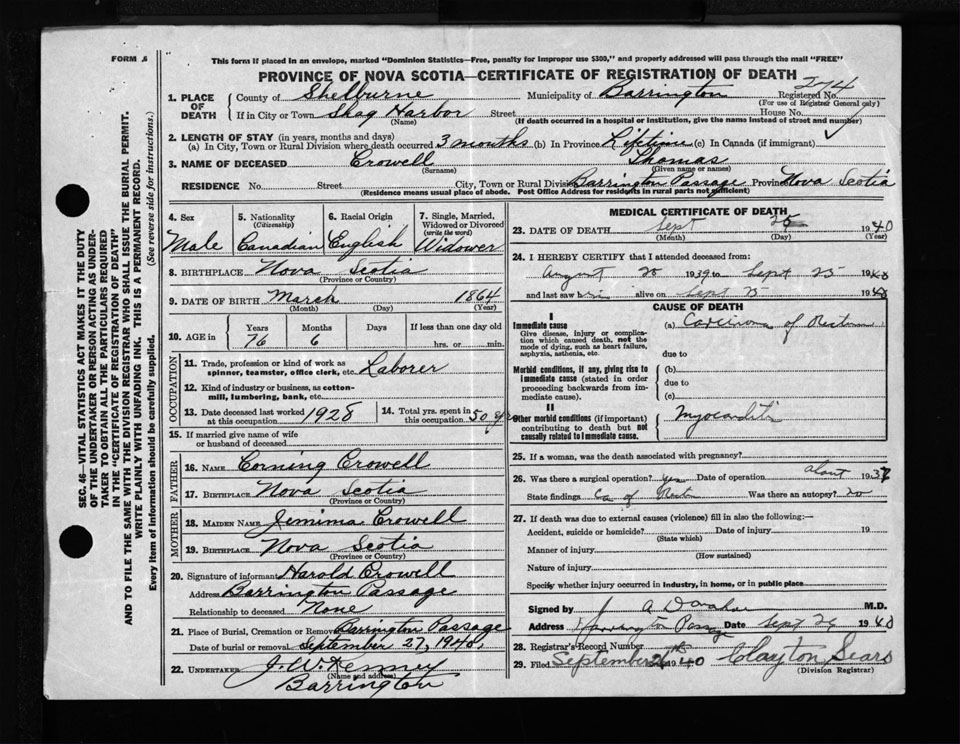 FORM
This form if placed in an envelope, marked "Dominion Statistics—Free, penalty for improper use $300," and properly addressed will pass through the mail "FREE"
PROVINCE OF NOVA SCOTIA—CERTIFICATE OF REGISTRATION OF DEATH
274
1. PLACE OF DEATH
County of Shelburne Municipality of Barrington Registered No.
(For use of Registrar General only)
If in City or Town Shag Harbor Street House No.
(Name) (If death occurred in a hospital or institution, give the name instead of street and number)
2. LENGTH OF STAY (in years, months and days)
(a) In City, Town or Rural Division where death occurred 3 months (b) In Province Lifetime (c) In Canada (if immigrant)
3. NAME OF DECEASED Crowell Thomas
(Surname) (Given name or names)
RESIDENCE No. Street City, Town or Rural Division Barrington Passage Province Nova Scotia
(Residence means usual place of abode. Post Office Address for residents in rural parts not sufficient)
4. Sex
Male
5. Nationality
(Citizenship)
Canadian
6. Racial Origin
English
7. Single, Married, Widowed or Divorced
(write the word)
Widower
8. BIRTHPLACE Nova Scotia
(Province or Country)
9. DATE OF BIRTH March 1864
(Month) (Day) (Year)
10. AGE in
Years Months Days If less than one day old
76 6 hrs. or min.
OCCUPATION
11. Trade, profession or kind of work as spinner, teamster, office clerk, etc. Laborer
12. Kind of industry or business, as cotton-mill, lumbering, bank, etc.
13. Date deceased last worked at this occupation 1928
14. Total yrs. spent in this occupation 50 yrs
15. If married give name of wife or husband of deceased
FATHER
16. NAME Corning Crowell
17. BIRTHPLACE Nova Scotia
(Province or Country)
MOTHER
18. MAIDEN NAME Jemima Crowell
19. BIRTHPLACE Nova Scotia
(Province or Country)
20. Signature of informant Harold Crowell
Address Barrington Passage
Relationship to deceased None
21. Place of Burial, Cremation or Removal Barrington Passage
Date of burial or removal September 27, 1940
22. UNDERTAKER J. W. Kenney
(Name and address)
Barrington
MEDICAL CERTIFICATE OF DEATH
23. DATE OF DEATH Sept 25 1940
(Month) (Day) (Year)
24. I HEREBY CERTIFY that I attended deceased from:
August 20 1939 to Sept 25 1940
and last saw him alive on Sept 25 1940
CAUSE OF DEATH
I
Immediate cause
Give disease, injury or complication which caused death, not the mode of dying, such as heart failure, asphyxia, asthenia, etc.
(a) Carcinoma of Rectum
due to
Morbid conditions, if any, giving rise to immediate cause (stated in order proceeding backwards from immediate cause).
(b)
due to
(c)
II
Other morbid conditions (if important) contributing to death but not causally related to immediate cause.
Myocarditis
25. If a woman, was the death associated with pregnancy?
26. Was there a surgical operation? yes Date of operation about 1937
State findings Ca of Rectum Was there an autopsy? no
27. If death was due to external causes (violence) fill in also the following:—
Accident, suicide or homicide? Date of injury 19
(State which)
Manner of injury
(How sustained)
Nature of injury
Specify whether injury occurred in industry, in home, or in public place
Signed by M.D.
Address Barrington Passage Date Sept 26 1940
28. Registrar's Record Number
29. Filed September 26th 1940 Clayton Sears
(Division Registrar)
SEC. 46—VITAL STATISTICS ACT MAKES IT THE DUTY
OF THE UNDERTAKER OR PERSON ACTING AS UNDER-
TAKER TO OBTAIN ALL THE PARTICULARS REQUIRED
IN THE "CERTIFICATE OF REGISTRATION OF DEATH"
AND TO FILE THE SAME WITH THE DIVISION REGISTRAR WHO SHALL ISSUE THE BURIAL PERMIT.
WRITE PLAINLY WITH UNFADING INK. THIS IS A PERMANENT RECORD.
Every item of information should be carefully supplied. (See reverse side for instructions.)